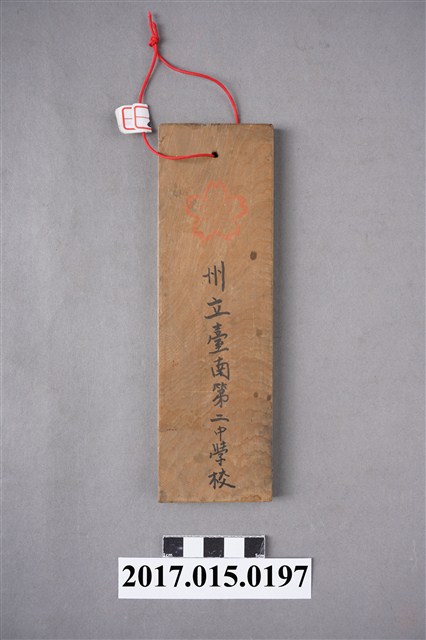 州立臺南第二中學校
2017.015.0197